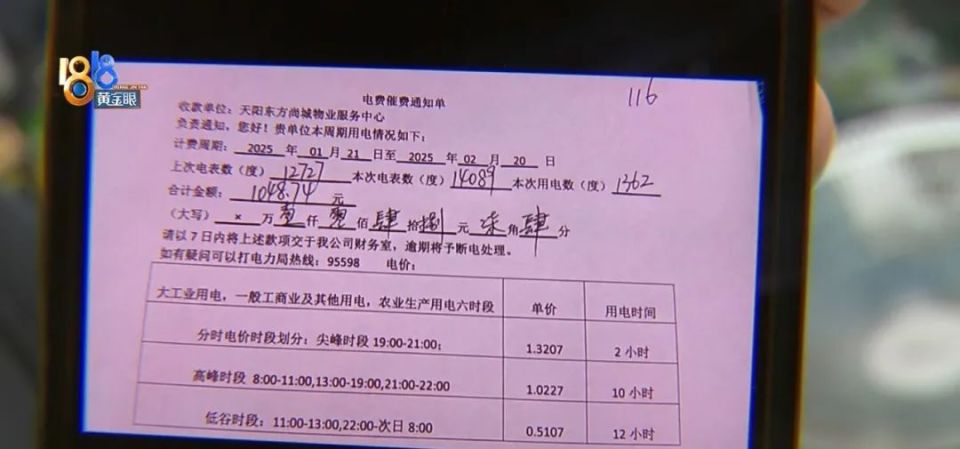 1818
黄金眼
116
电费催费通知单
收款单位：天阳东方尚城物业服务中心
负责通知，您好！贵单位本周期用电情况如下：
计费周期：2025 年 01 月 21 日至 2025 年 02 月 20 日
上次电表数（度）12727 本次电表数（度）14089 本次用电数（度）1362
合计金额：1048.74 元
（大写）× 万 壹 仟 零 佰 肆 拾 捌 元 柒 角 肆 分
请以 7 日内将上述款项交于我公司财务室，逾期将予断电处理。
如有疑问可以打电力局热线：95598 电价：
大工业用电，一般工商业及其他用电，农业生产用电六时段 单价 用电时间
分时电价时段划分：尖峰时段 19:00-21:00； 1.3207 2 小时
高峰时段 8:00-11:00,13:00-19:00,21:00-22:00 1.0227 10 小时
低谷时段：11:00-13:00,22:00-次日 8:00 0.5107 12 小时